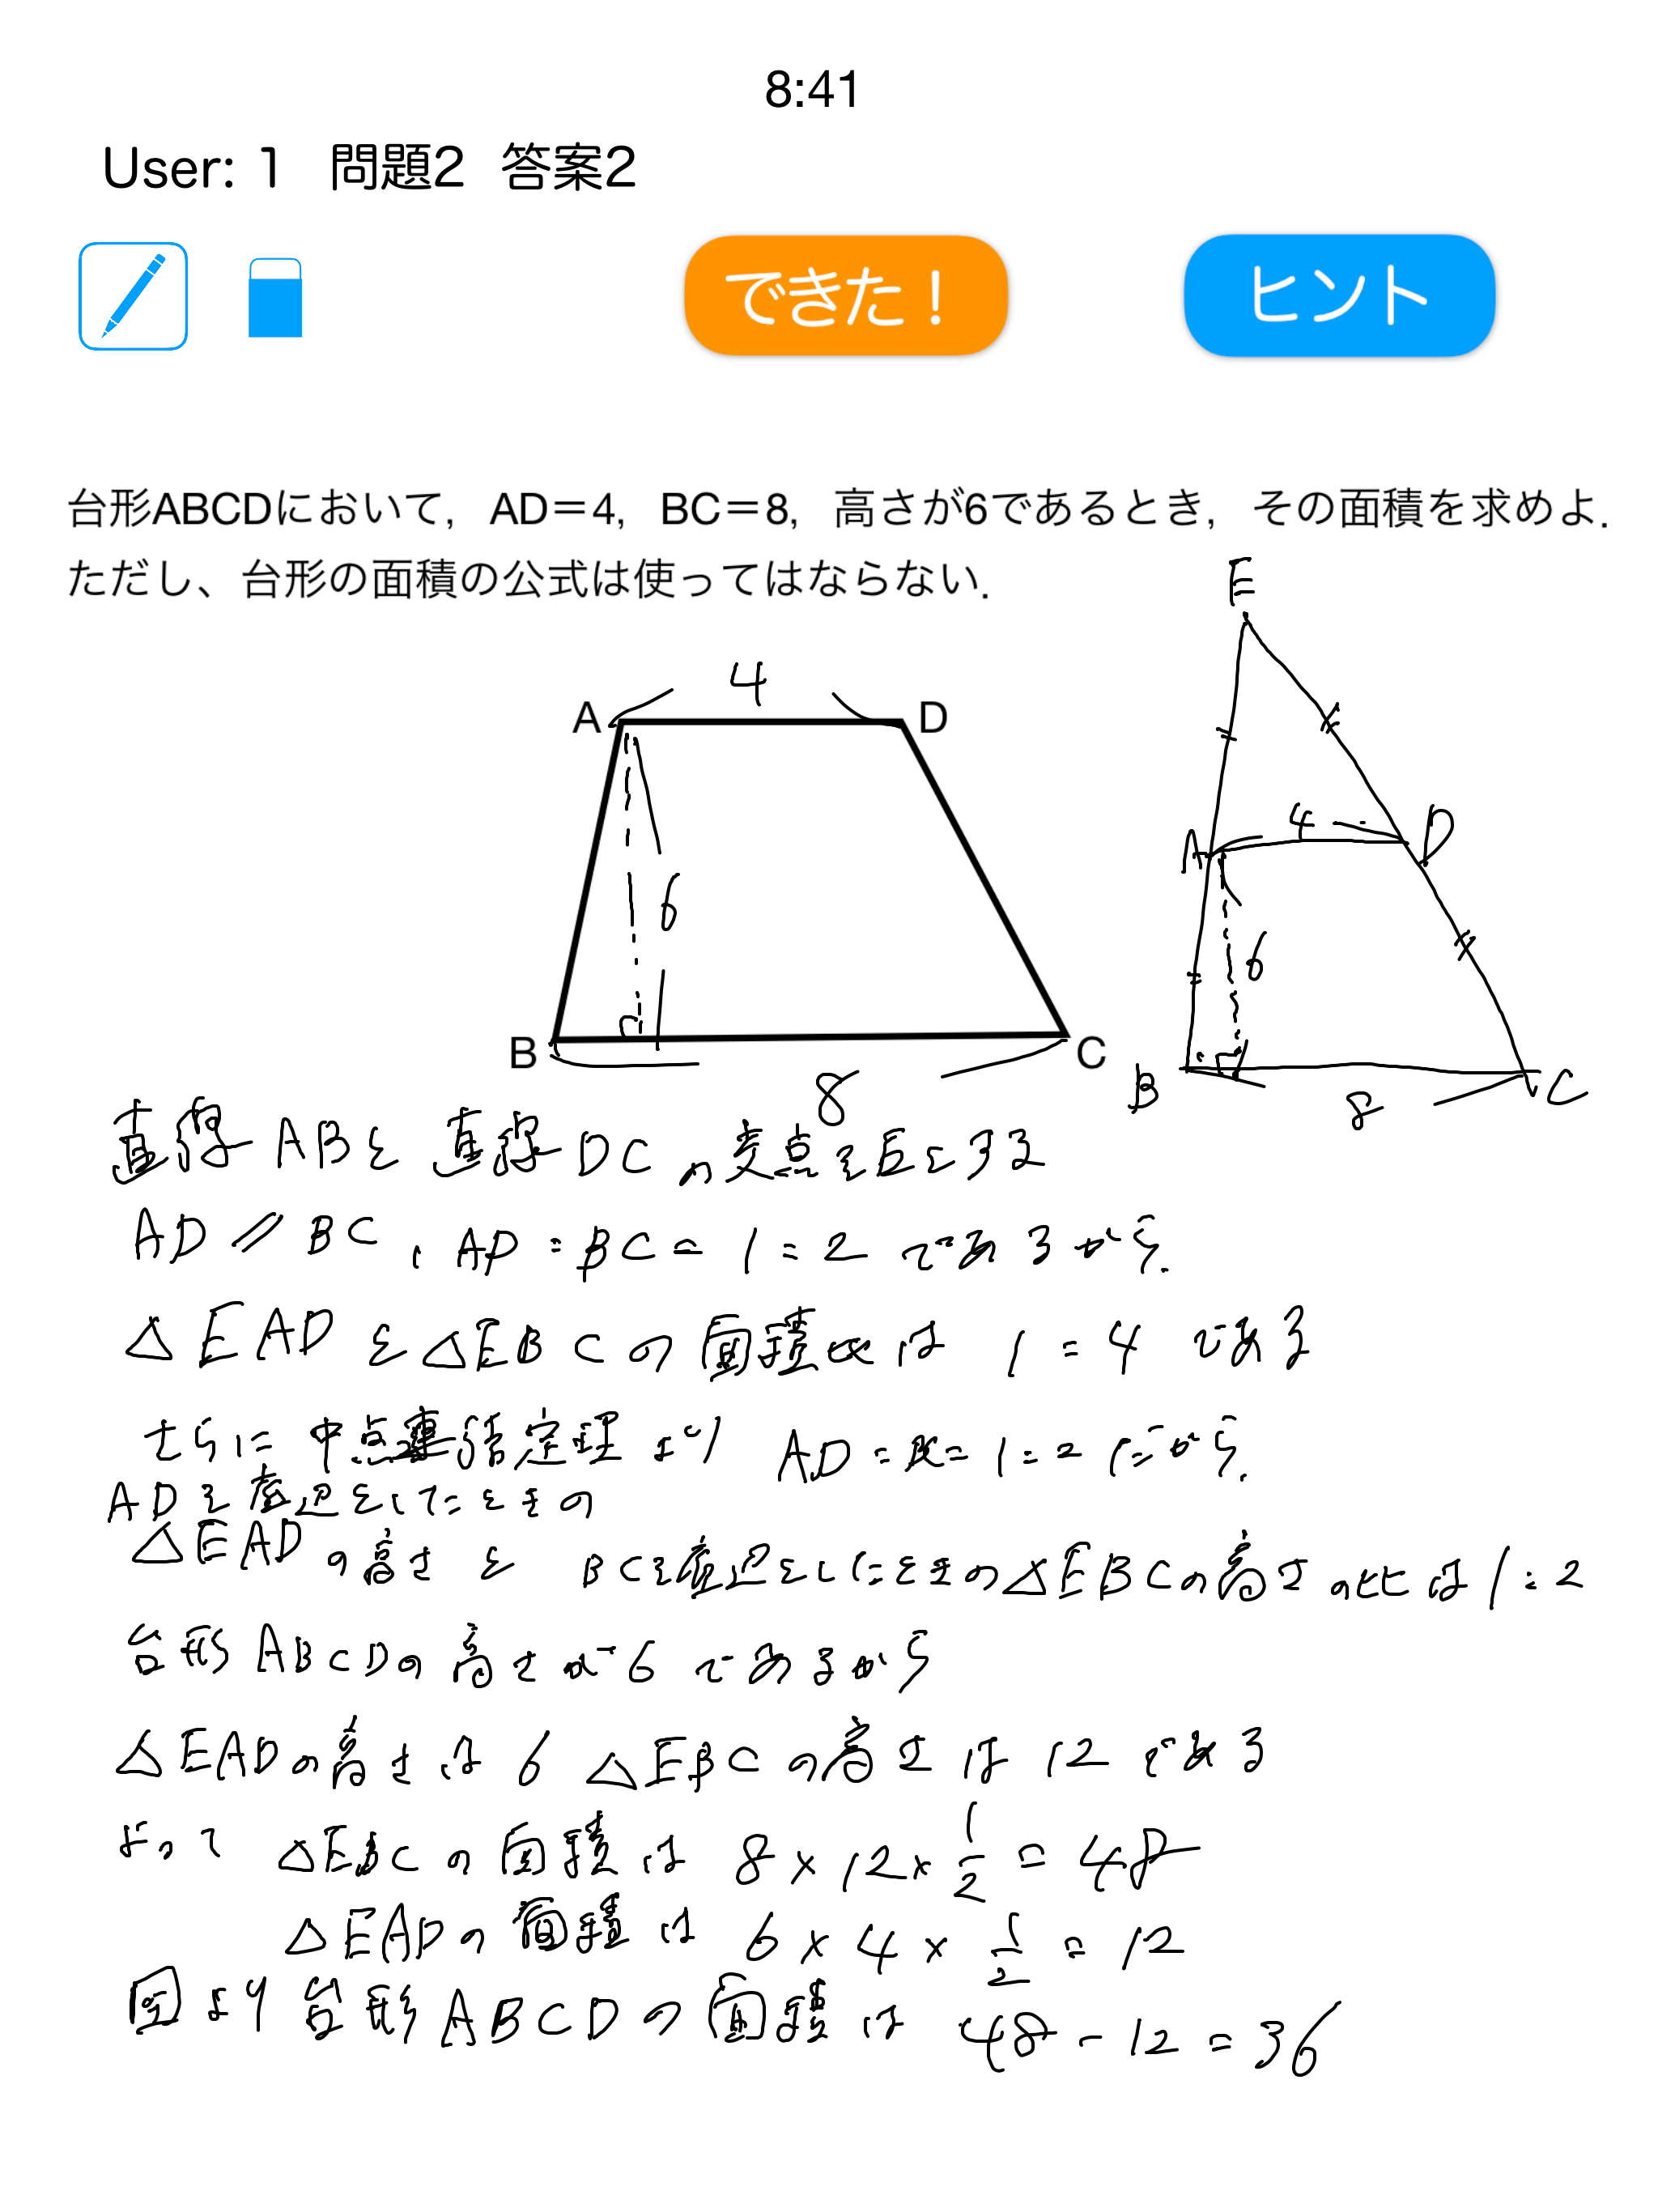 8:41
User: 1 問題2 答案2
できた！ ヒント
台形ABCDにおいて，AD＝4，BC＝8，高さが6であるとき，その面積を求めよ．
ただし、台形の面積の公式は使ってはならない．
E
4
A D
4
A D
6
6
B C
8
B C
8
直線ABと直線DCの交点をEとする
AD // BC, AD:BC=1:2であるから,
△EADと△EBCの面積比は 1:4 である
さらに中点連結定理より AD:BC=1:2だから,
ADを底辺としたときの
△EADの高さと BCを底辺としたときの△EBCの高さの比は1:2
台形ABCDの高さが6であるから
△EADの高さは 6 △EBCの高さは 12である
よって △EBCの面積は 8×12×1/2=48
△EADの面積は 6×4×1/2=12
図より台形ABCDの面積は 48-12=36